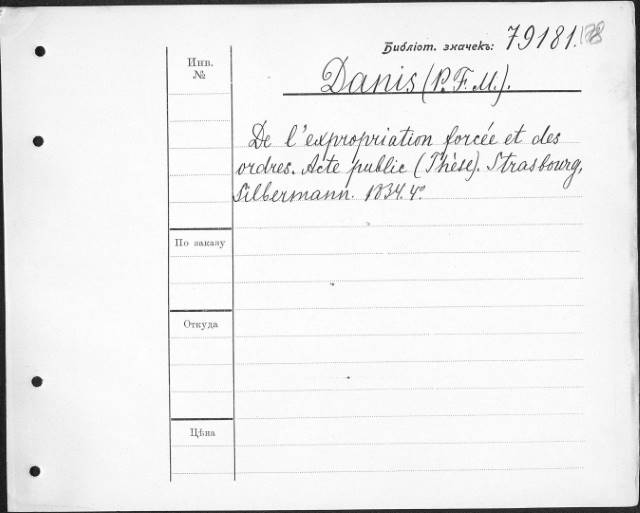 Библіот. значекъ: 79181.
Инв.
№
Danis (P. F. M.).
De l'expropriation forcée et des
ordres. Acte public (Thèse). Strasbourg,
Silbermann. 1834. 4º
По заказу
Откуда
Цѣна